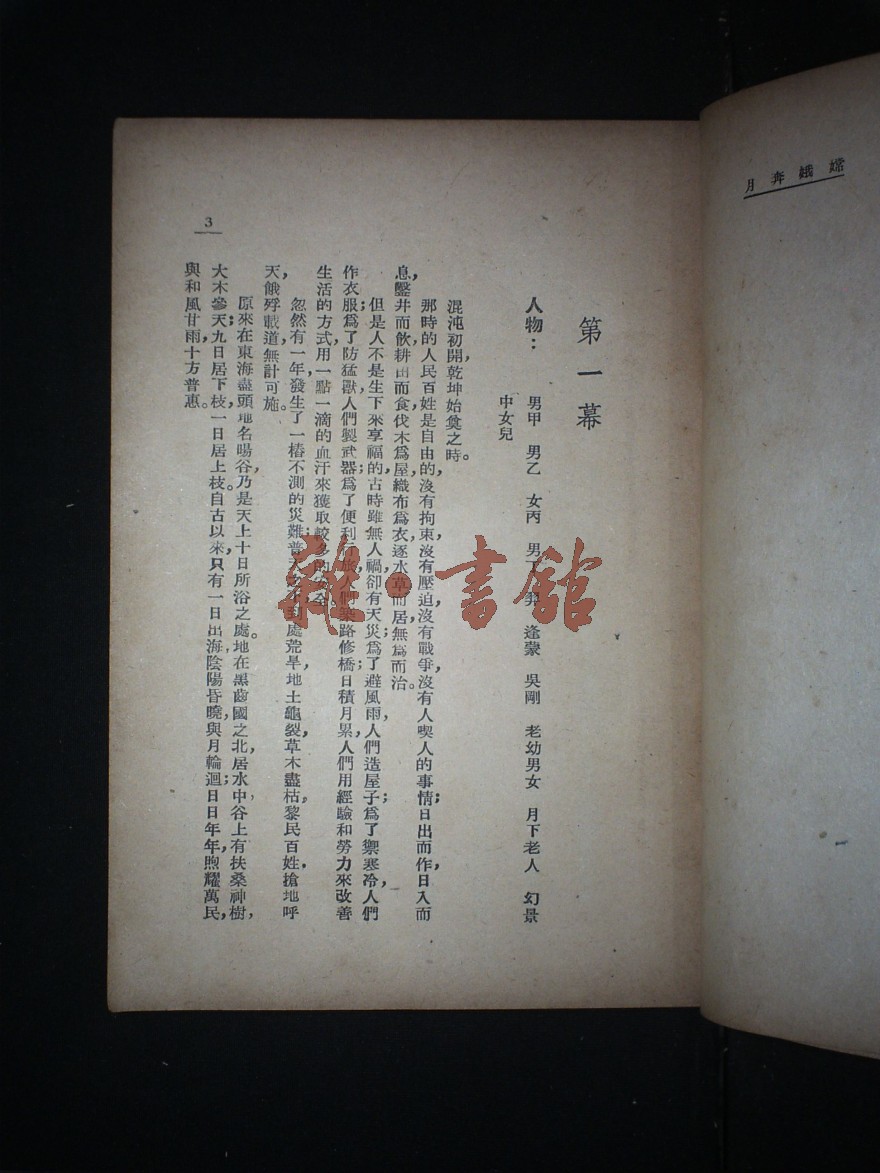 嫦娥奔月
3
第一幕
人物：　男甲　男乙　女丙　男丁　羿　逢蒙　吳剛　老幼男女　月下老人　幻景
中女兒
混沌初開，乾坤始奠之時。
那時的人民百姓是自由的，沒有拘束，沒有壓迫，沒有戰爭，沒有人喫人的事情；日出而作，日入而
息，鑿井而飲，耕田而食，伐木爲屋，織布爲衣，逐水草而居，無爲而治。
但是人不是生下來享福的，古時雖無人禍，卻有天災，爲了避風雨，人們造屋子；爲了禦寒冷，人們
作衣服；爲了防猛獸，人們製武器；爲了便利行旅，人們築路修橋；日積月累，人們用經驗和勞力來改善
生活的方式，用一點一滴的血汗來獲取較多的安全。
忽然有一年，發生了一樁不測的災難，普天之下，到處荒旱，地土龜裂，草木盡枯。黎民百姓，搶地呼
天，餓殍載道，無計可施。
原來在東海盡頭，地名暘谷，乃是天上十日所浴之處。地在黑齒國之北，居水中；谷上有扶桑神樹，
大木參天；九日居下枝，一日居上枝。自古以來，只有一日出海，陰陽昏曉，與月輪迴；日日年年，煦耀萬民，
與和風甘雨，十方普惠。
雜·書館